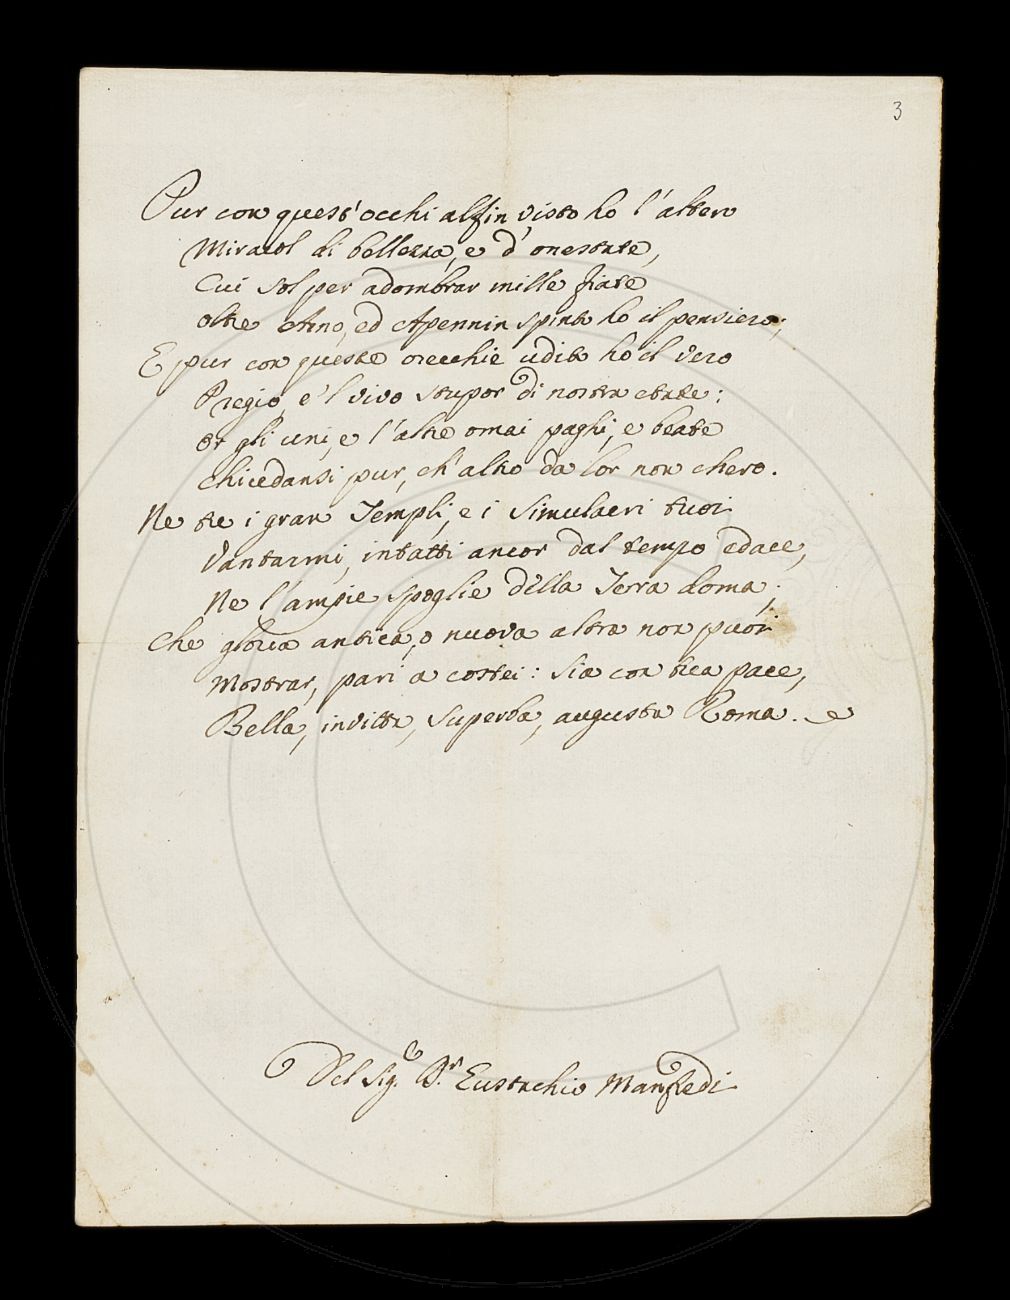 3
Pur con quest'occhi alfin visto ho l'altero
Miracol di bellezza, e d'onestate,
Cui sol per adombrar mille fiate
oltre Arno, ed Apennin spinto ho il pensiero;
E pur con queste orecchie udito ho il vero
Pregio, e'l vivo stupor di nostra etate:
or gli uni, e l'altre omai paghi, e beate
Chiudansi pur, ch'altro da lor non chero.
Ne tu i gran Templi, e i simulacri tuoi
Vantarmi, intatti ancor dal tempo edace,
Ne l'ampie spoglie della Terra doma;
Che gloria antica, o nuova altra non puoi
Mostrar, pari a costei: sia con tua pace,
Bella, invitta, superba, augusta Roma.
Del Sig.e D.r Eustachio Manfredi